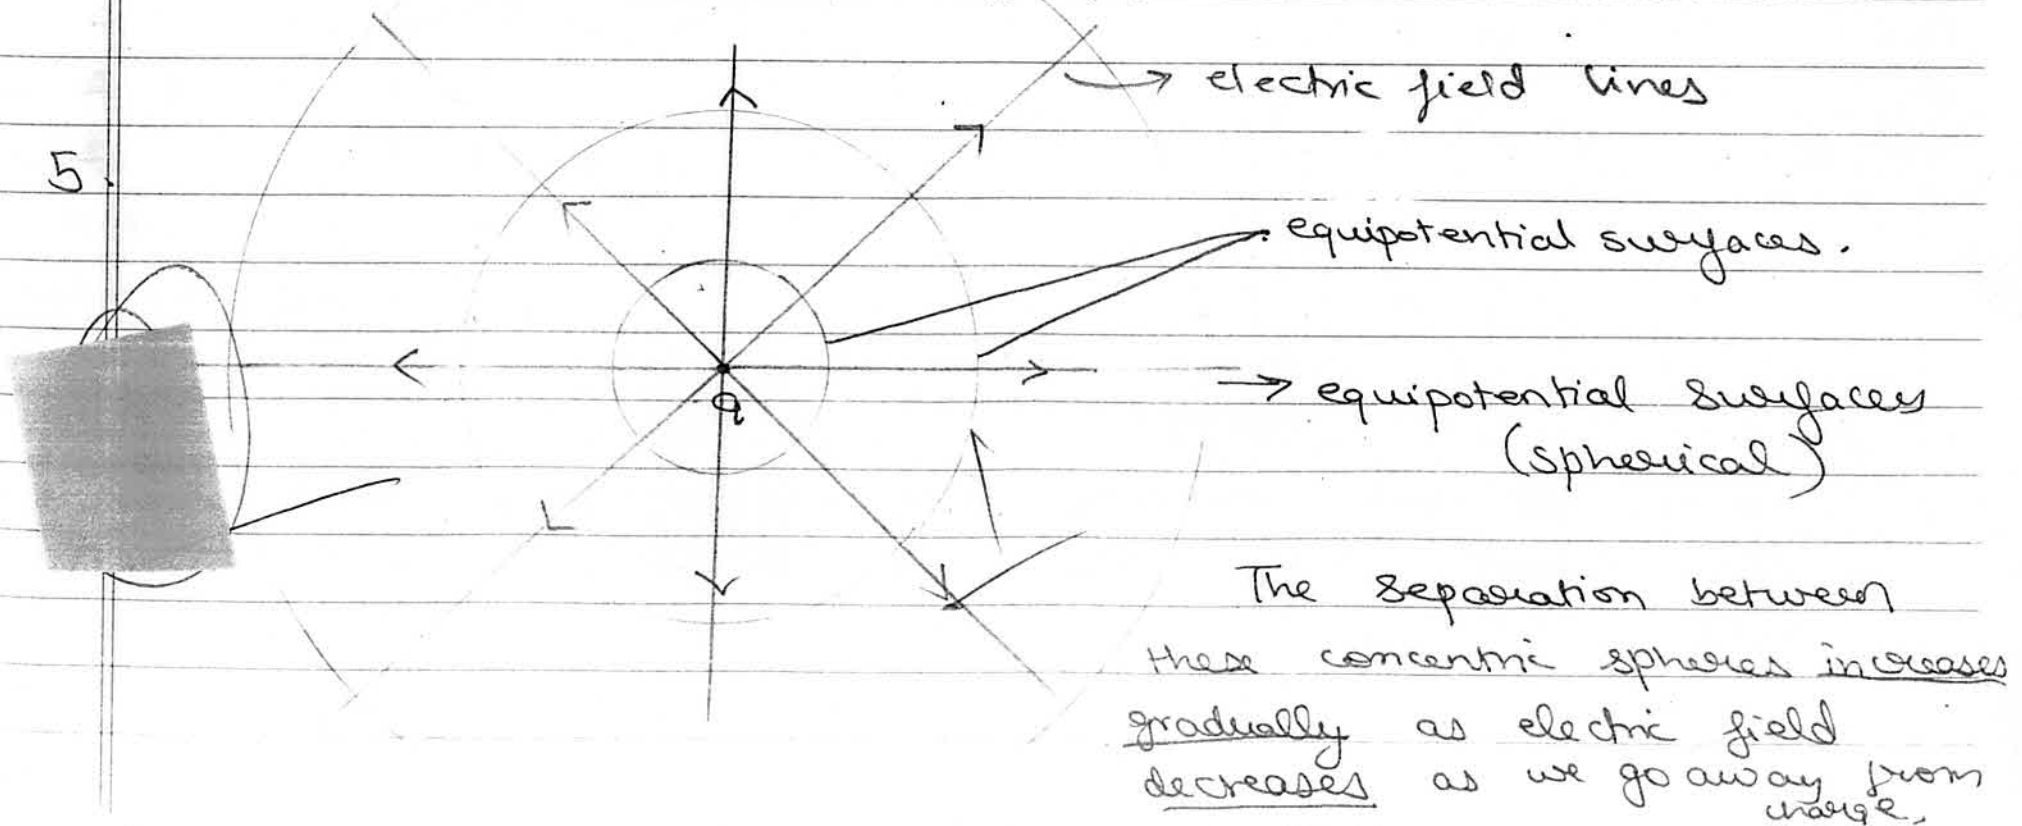 electric field lines
5.
equipotential surfaces.
→ equipotential surfaces
(spherical)
q
The separation between
these concentric spheres increases
gradually as electric field
decreases as we go away from
charge.